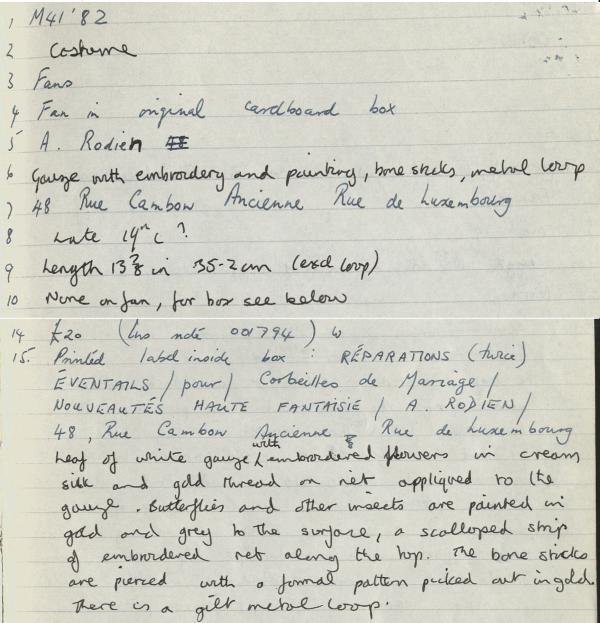 1 M41'82
2 Costume
3 Fans
4 Fan in original cardboard box
5 A. Rodien
6 Gauze with embroidery and painting, bone sticks, metal loop
7 48 Rue Cambon Ancienne Rue de Luxembourg
8 Late 19th C ?
9 Length 13 7/8 in 35.2 cm (excl loop)
10 None on fan, for box see below
14 £20 (Ins note 001794)
15. Printed label inside box : RÉPARATIONS (twice)
ÉVENTAILS / pour / Corbeilles de Mariage /
NOUVEAUTÉS HAUTE FANTAISIE / A. RODIEN /
48, Rue Cambon Ancienne Rue de Luxembourg
Leaf of white gauze with embroidered flowers in cream
silk and gold thread on net appliqued to the
gauze. Butterflies and other insects are painted in
gold and grey to the surface, a scalloped strip
of embroidered net along the top. The bone sticks
are pierced with a formal pattern picked out in gold.
There is a gilt metal loop.